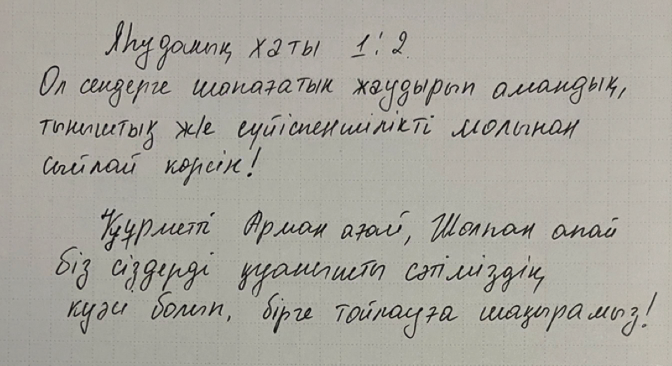 Яһуданың хаты 1:2
Ол сендерге шапағатын жаудырып амандық,
тыныштық ж/е сүйіспеншілікті молынан
сыйлай көрсін!
Құрметті Арман ағай, Шолпан апай
біз сіздерді қуанышты сәтіміздің
куәсі болып, бірге тойлауға шақырамыз!